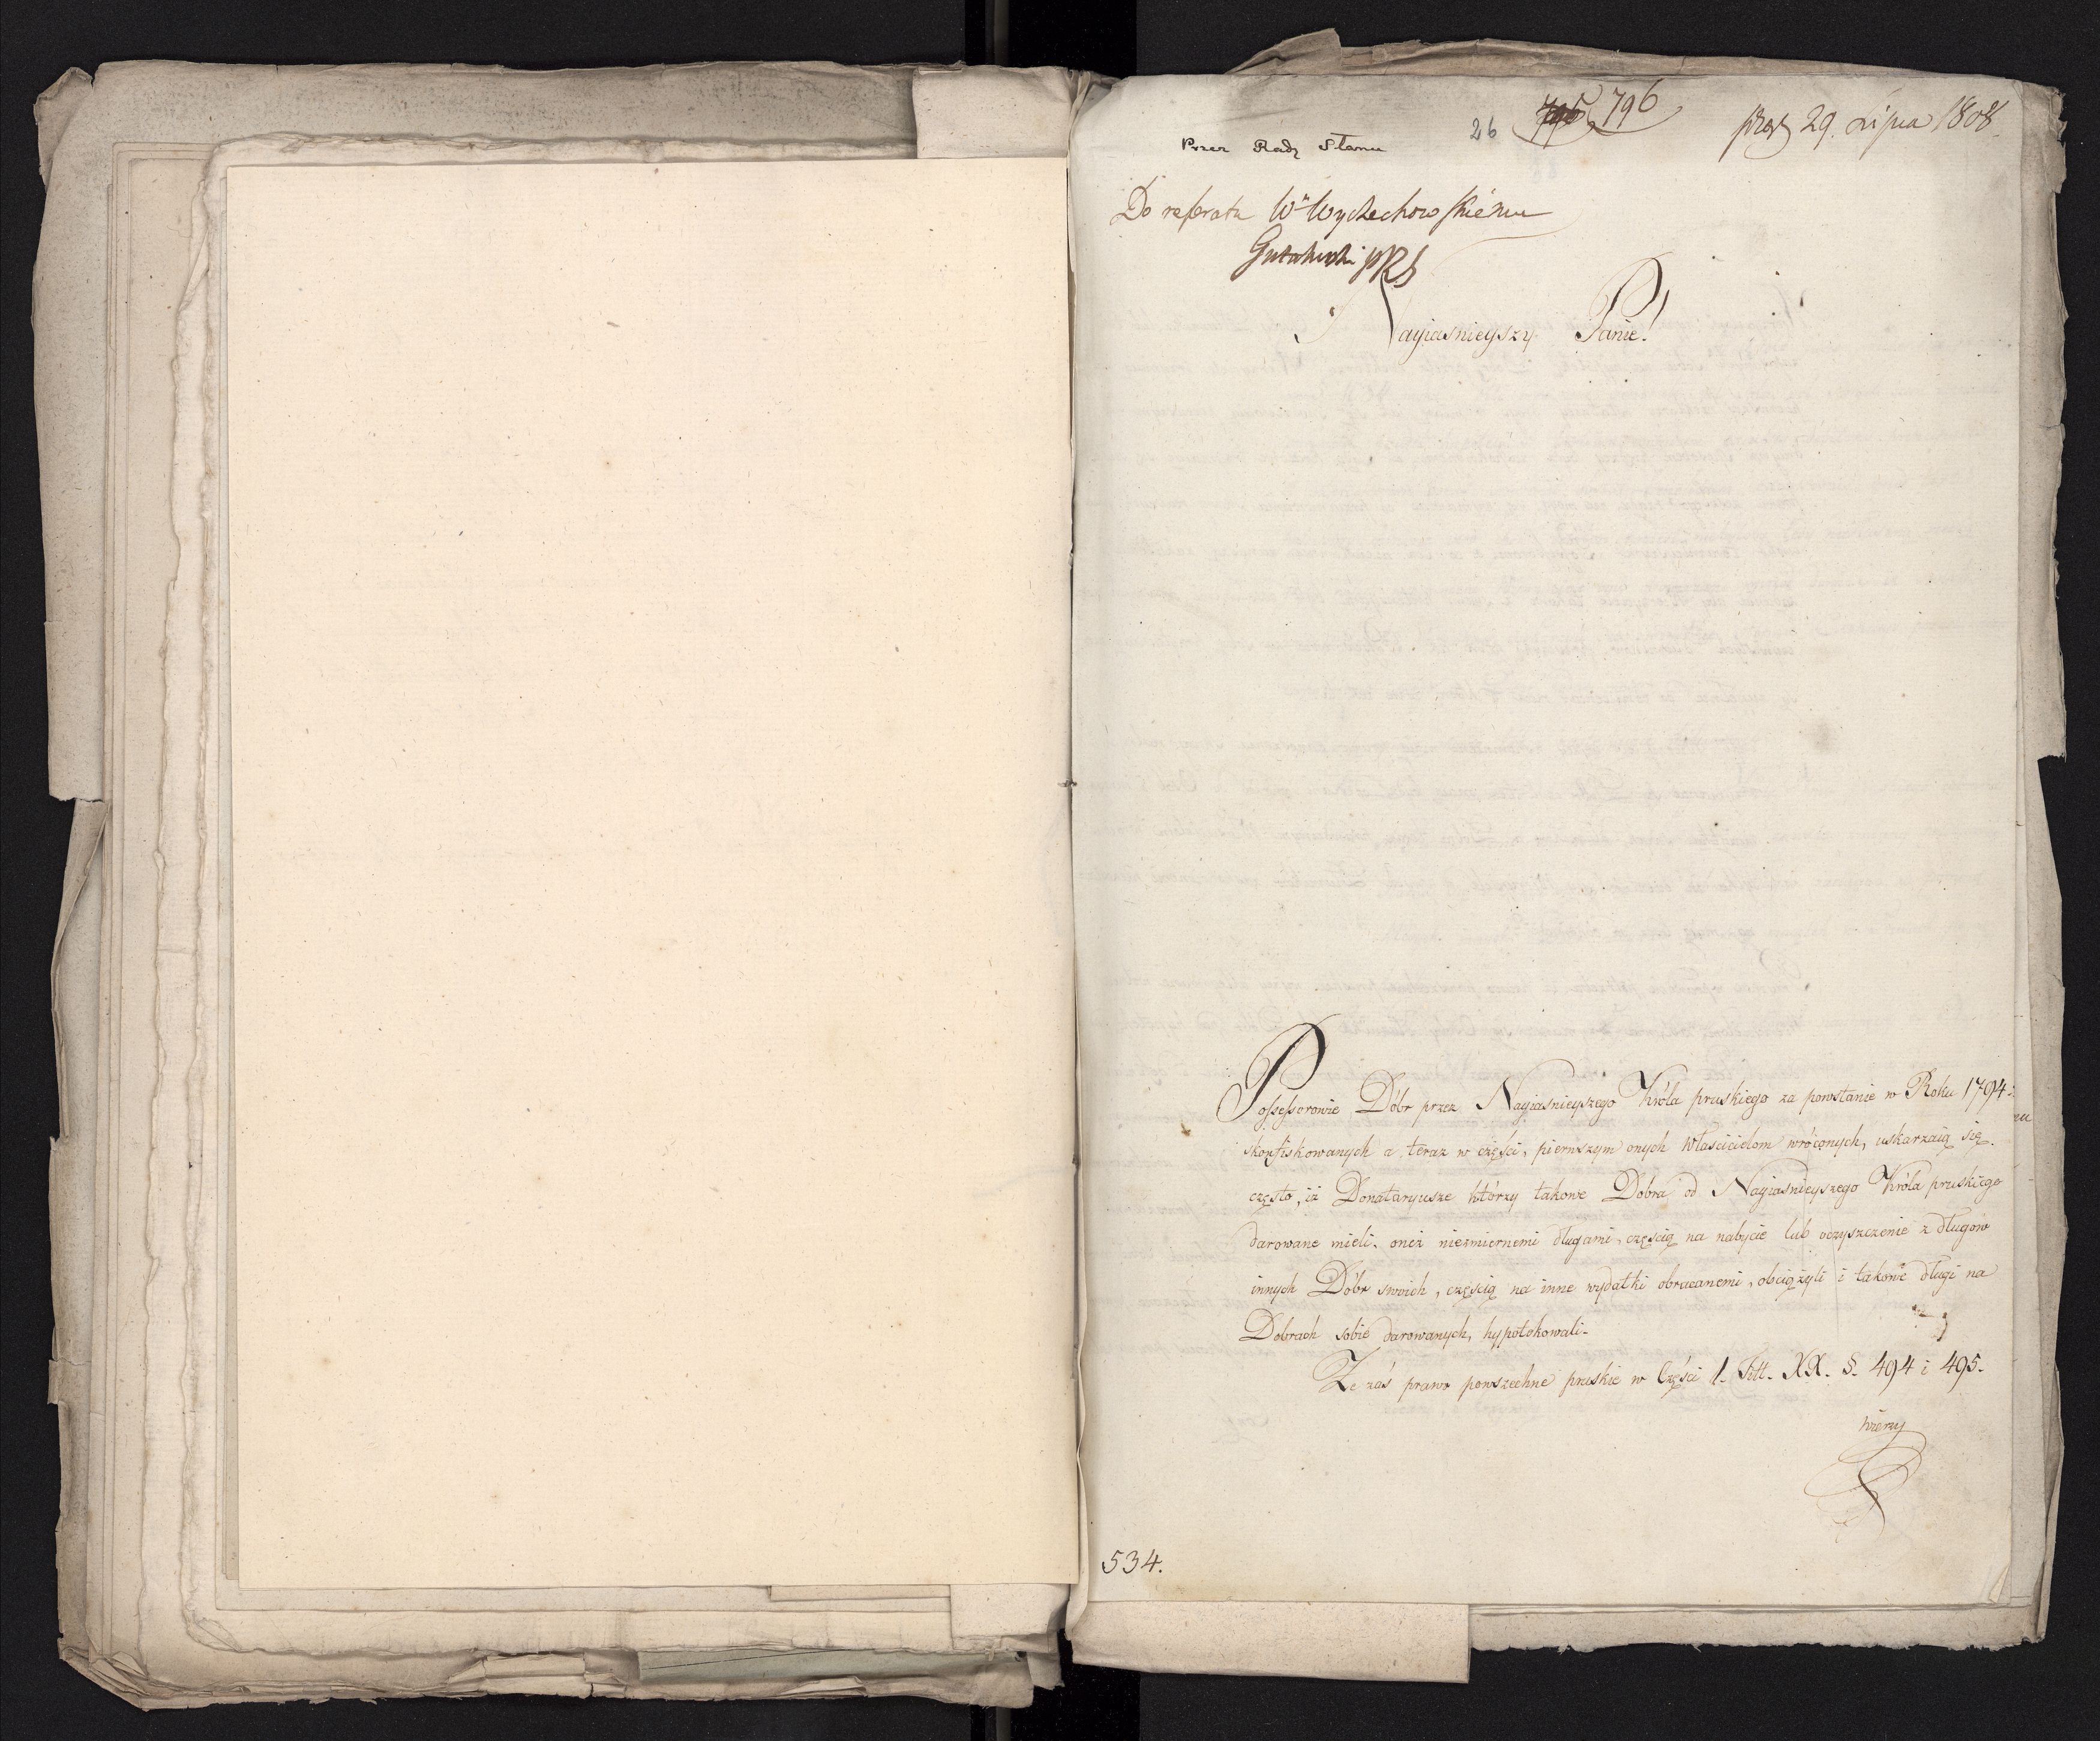 26 796
prez 29. Lipca 1808.
Przez Radę Stanu
Do referatu Wu Wyczechowskiemu
Gutakowski PRS
Nayiasnieyszy Panie!
Possessorowie Dóbr przez Nayiasnieyszego Króla pruskiego za powstanie w Roku 1794:
skonfiskowanych a teraz w części, pierwszym onych Właścicielom wróconych, uskarzaią się
często, iż Donataryusze którzy takowe Dobra od Nayiasnieyszego Króla pruskiego
darowane mieli, oneż niezmiernemi długami, częścią na nabycie lub oczyszczenie z długów
innych Dóbr swoich, częścią na inne wydatki obracanemi, obciążyli i takowe długi na
Dobrach sobie darowanych, hypotekowali.
Ze zaś prawo powszechne pruskie w Części 1. Titt. XX. §. 494 i 495.
534.